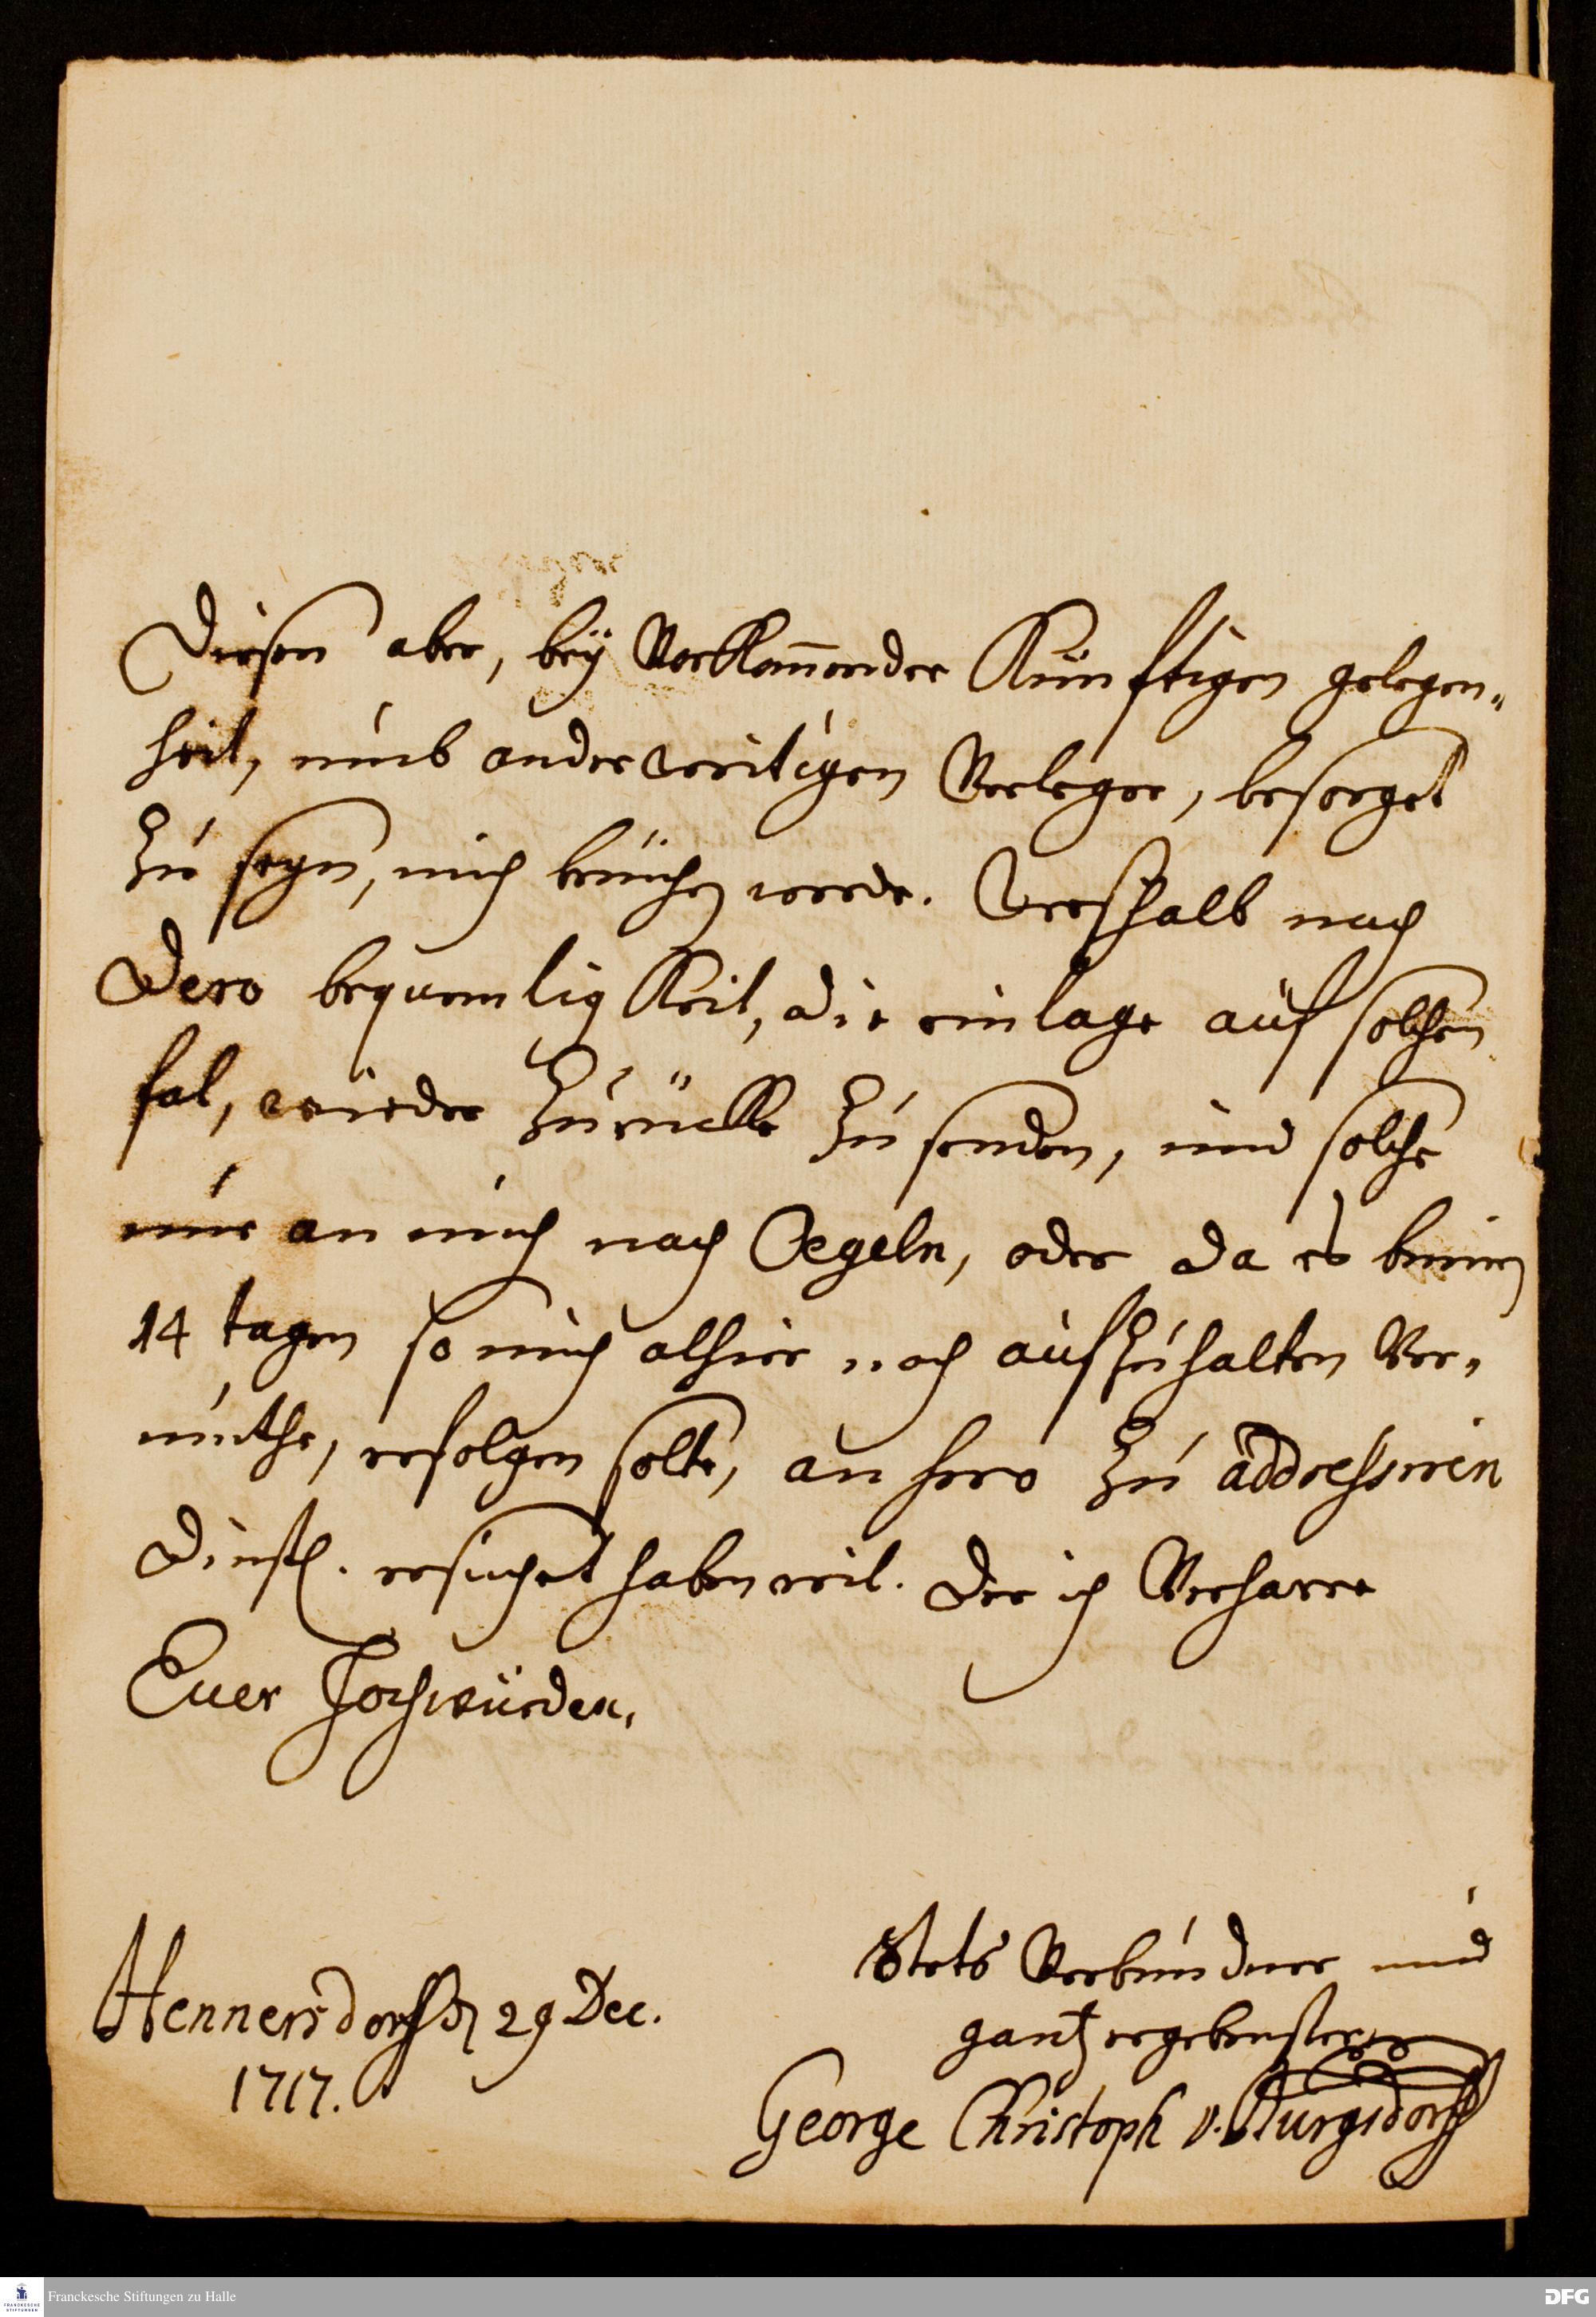 Diesen aber, beÿ Vorkom̅ender Künfftigen gelegen„
heit, umb anderweitigen Verleger, besorget
zu seyn, mich bemühen werde. Weshalb nach
Dero bequemligkeit, die einlage auf solchen
fal, wieder zurückke zu senden, und solche
nur an mich nach Oegeln, oder da es binnen
14 tagen so mich alhier noch aufzuhalten Ver„
muthe, erfolgen solte, anhero zu addressiren
Dinstl. ersuchet haben wil. Der ich Verharre
Euer Hochwürden,
Stets Verbundner und
gantz ergebenster
Hennersdorff d 29 Dec.
1717.
George Christoph v. Burgsdorff
Franckesche Stiftungen zu Halle
FRANCKESCHE
STIFTUNGEN
DFG